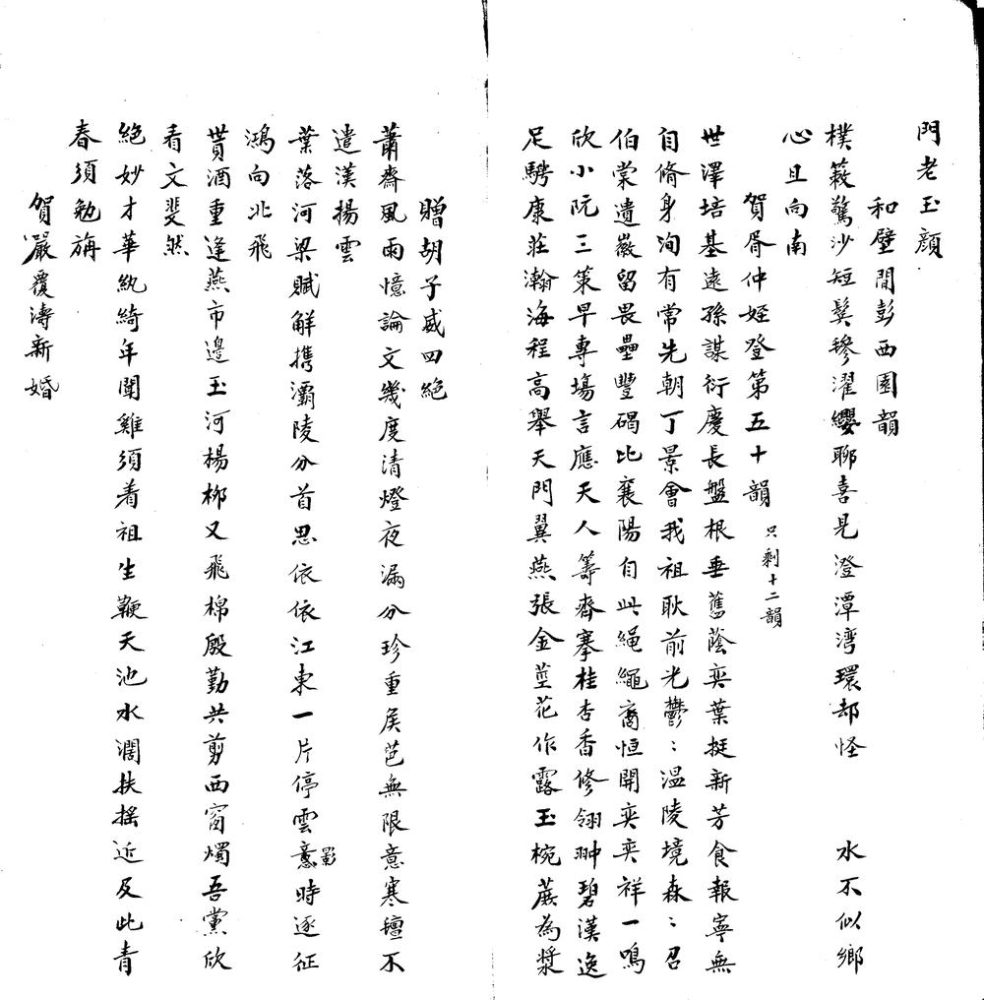 門老玉顏
和壁間彭西園韻
樸簌驚沙短鬓鬖濯纓聊喜見澄潭灣環却怪 水不似鄉
心且向南
賀胥仲姪登第五十韻 只剩十二韻
世澤培基遠孫謀衍慶長盤根垂舊蔭奕葉挺新芳食報寧無
自脩身洵有常先朝丁景會我祖耿前光鬱：溫陵境森：召
伯棠遺徽留畏壘豐碣比襄陽自此繩繩裔恒開奕奕祥一鳴
欣小阮三策早專塲言應天人籌齊搴桂杏香修翎翀碧漢逸
足騁康莊瀚海程高舉天門翼燕張金莖花作露玉椀蔗為漿
贈胡子威四絕
蕭齋風雨憶論文幾度清燈夜漏分珍重矦芭無限意寒壇不
遣漢揚雲
葉落河梁賦解携灞陵分首思依依江東一片停雲意影時逐征
鴻向北飛
貰酒重逢燕市邉玉河楊栁又飛棉殷勤共剪西窗燭吾黨欣
看文斐然
絕妙才華紈綺年聞雞須着祖生鞭天池水濶扶搖近及此青
春須勉旃
賀嚴覆濤新婚